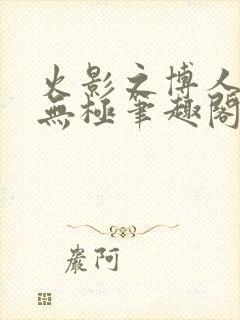 火影之博人
無極筆趣閣
嚴阿